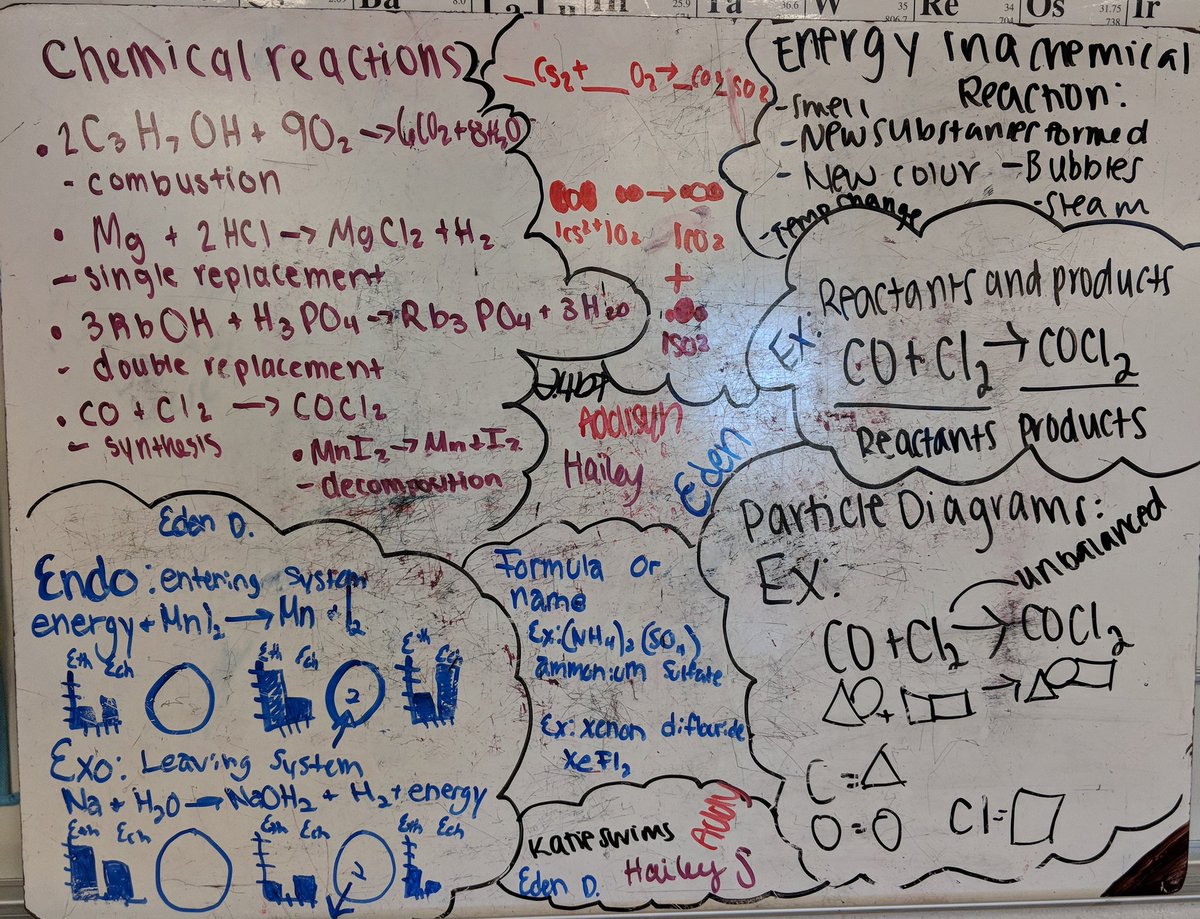 Ta
W
Re
Os
Ir
25.9
36.6
35
34
31.75
806.7
738
Chemical reactions
• 2C3H7OH + 9O2 → 6CO2 + 8H2O
- combustion
• Mg + 2HCl → MgCl2 + H2
- single replacement
• 3RbOH + H3PO4 → Rb3PO4 + 3H2O
- double replacement
• CO + Cl2 → COCl2
- synthesis
• MnI2 → Mn + I2
- decomposition
_CS2 + __O2 → _CO2 _SO2
1CS2 + 1O2
1CO2
+
1SO2
Addisyn
Hailey
Eden
Energy in a chemical
Reaction:
- smell
- New substances formed
- New colur - Bubbles
- steam
- Temp change
Reactants and products
Ex: CO + Cl2 → COCl2
Reactants products
Eden D.
Endo: entering system
energy + MnI2 → Mn + I2
Eth Ech
Eth Ech
Eth Ech
2
Exo: Leaving system
Na + H2O → NaOH2 + H2 + energy
Eth Ech
Eth Ech
Eth Ech
2
Formula or
name
Ex: (NH4)2 (SO4)
ammonium sulfate
Ex: xenon diflouride
XeFl2
Particle Diagrams:
Ex:
unbalanced
CO + Cl2 → COCl2
+ →
C = △
O = O
Cl = □
Katie Swims
Eden D.
Hailey S